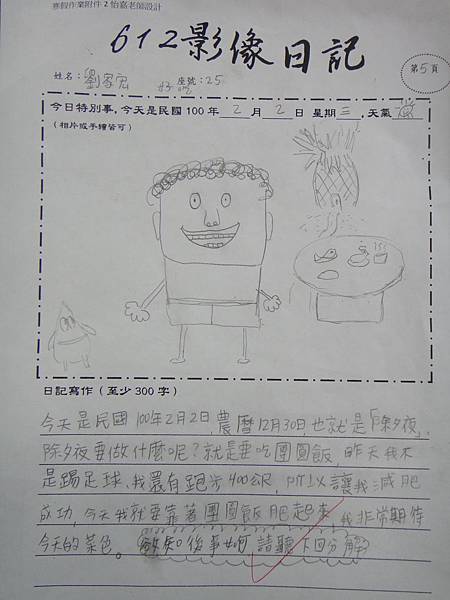 寒假作業附件2怡嘉老師設計
612影像日記
姓名：劉家宏 好吃 座號：25
第5頁
今日特別事，今天是民國100年 2 月 2 日 星期三，天氣
（相片或手繪皆可）
日記寫作（至少300字）
今天是民國100年2月2日，農曆12月30日，也就是「除夕夜」，
除夕夜要做什麼呢？就是要吃團圓飯，昨天我不
是踢足球、我還有跑步400公尺，所以讓我減肥
成功，今天我就要靠著團圓飯肥起來，我非常期待
今天的菜色。欲知後事如何，請聽下回分解